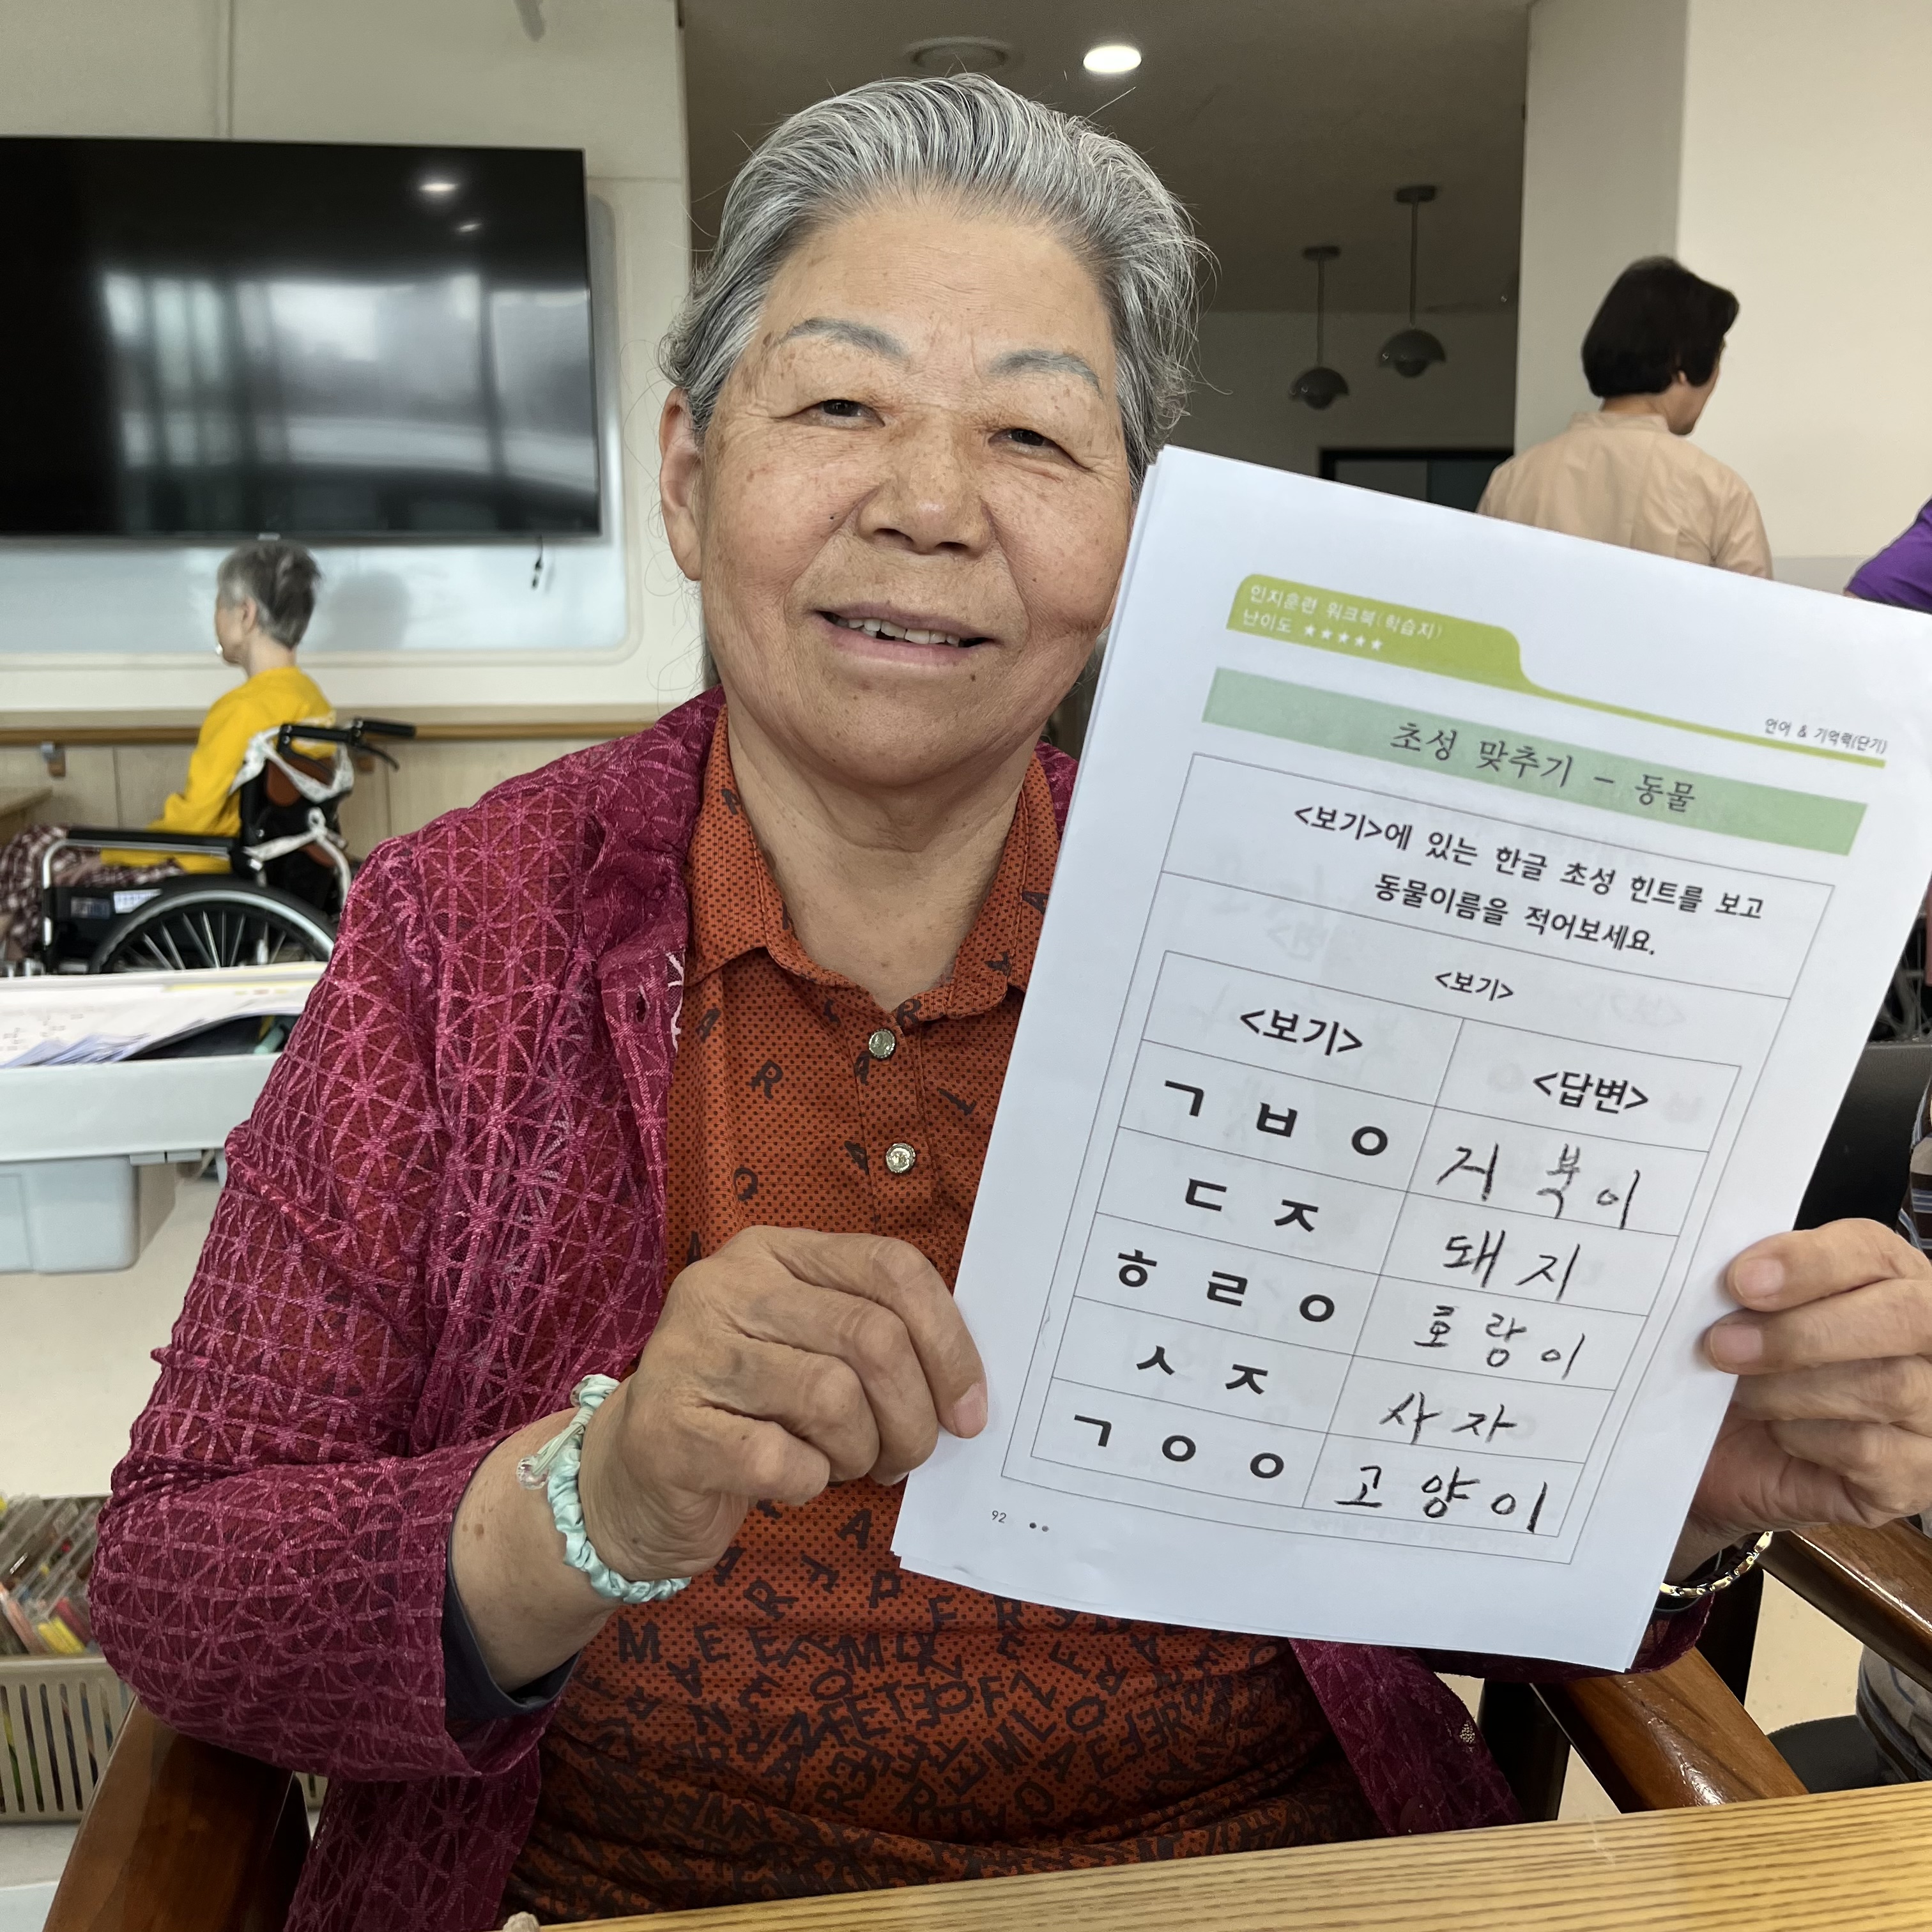 인지훈련 워크북(학습지)
난이도 ★★★★★
언어 & 기억력(단기)
초성 맞추기 - 동물
<보기>에 있는 한글 초성 힌트를 보고
동물이름을 적어보세요.
<보기>
<보기> <답변>
ㄱ ㅂ ㅇ 거북이
ㄷ ㅈ 돼지
ㅎ ㄹ ㅇ 호랑이
ㅅ ㅈ 사자
ㄱ ㅇ ㅇ 고양이
92